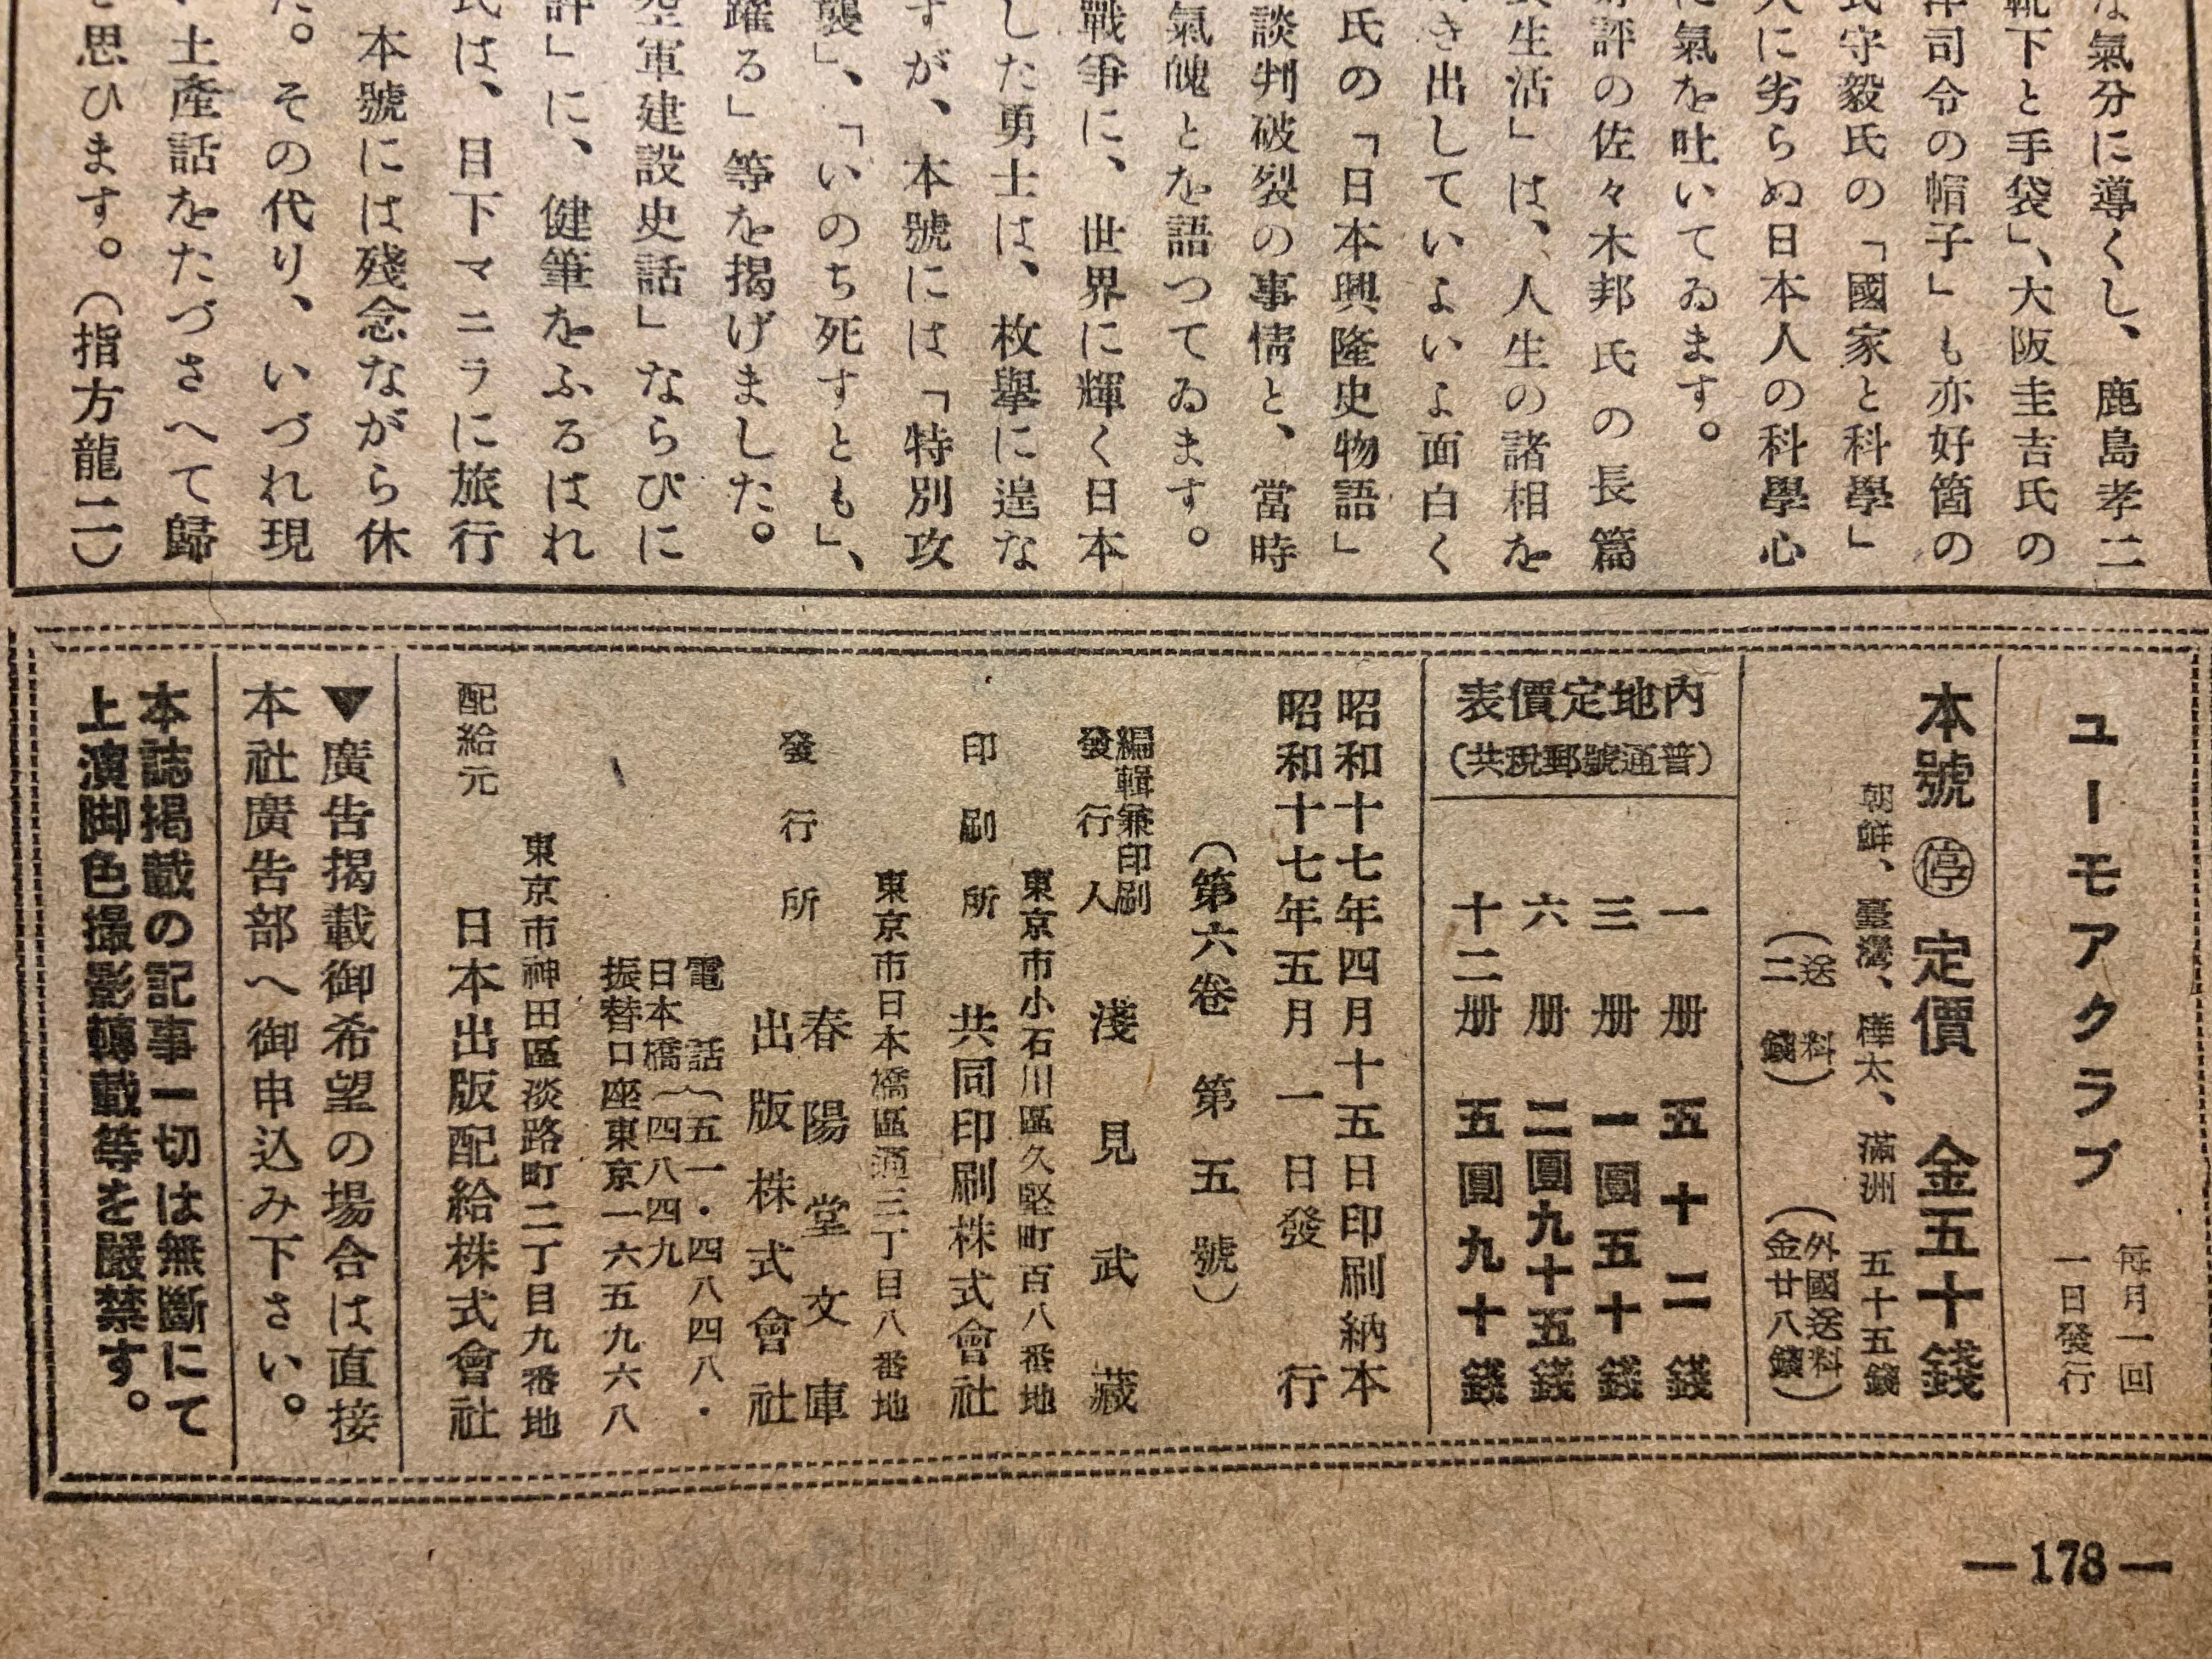 な氣分に導くし、鹿島孝二
靴下と手袋」、大阪圭吉氏の
洋司令の帽子」も亦好箇の
氏守毅氏の「國家と科學」
人に劣らぬ日本人の科學心
に氣を吐いてゐます。
好評の佐々木邦氏の長篇
生活」は、人生の諸相を
き出していよいよ面白く
氏の「日本興隆史物語」
談判破裂の事情と、當時
氣魄とを語つてゐます。
戰爭に、世界に輝く日本
した勇士は、枚擧に遑な
すが、本號には「特別攻
襲」、「いのち死すとも」、
躍る」等を掲げました。
空軍建設史話」ならびに
評」に、健筆をふるはれ
氏は、目下マニラに旅行
本號には殘念ながら休
た。その代り、いづれ現
土産話をたづさへて歸
と思ひます。(指方龍二)
ユーモアクラブ
毎月一回
一日發行
本號 停 定價 金五十錢
朝鮮、臺灣、樺太、滿洲 五十五錢
(送料
二錢)
(外國送料
金廿八錢)
內地定價表
(普通號郵税共)
一册 五十二錢
三册 一圓五十錢
六册 二圓九十五錢
十二册 五圓九十錢
昭和十七年四月十五日印刷納本
昭和十七年五月一日發行
(第六卷 第五號)
編輯兼印刷
發行人 淺見武藏
東京市小石川區久堅町百八番地
印刷所 共同印刷株式會社
東京市日本橋區通三丁目八番地
發行所 春陽堂文庫
出版株式會社
電話(五一・四八四八・
日本橋(四八四九
振替口座東京一六五九六八
東京市神田區淡路町二丁目九番地
配給元 日本出版配給株式會社
▼廣告掲載御希望の場合は直接
本社廣告部へ御申込み下さい。
本誌掲載の記事一切は無斷にて
上演脚色撮影轉載等を嚴禁す。
—178—